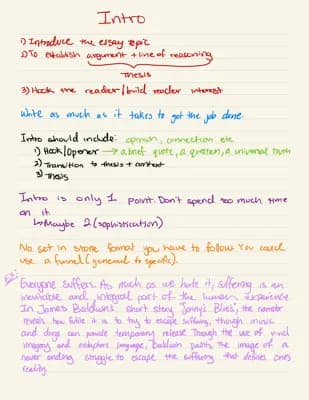 Intro
1) Introduce the essay topic
2) To establish argument + line of reasoning
thesis
3) Hook the reader/build reader interest
Write as much as it takes to get the job done.
Intro should include: opinion, connection etc
1) Hook/Opener → a brief quote, a question, a universal truth
2) Transition to thesis + context
3) Thesis
Intro is only 1 point. Don't spend too much time
on it
↳ Maybe 2 (sophistication)
No set in stone format you have to follow. You could
use a funnel (general to specific).
Ex:
Everyone suffers. As much as we hate it, suffering is an
inevitable and integral part of the human experience.
In James Baldwin's short story "Sonny's Blues", the narrator
reveals how futile it is to try to escape suffering, though music
and drugs can provide temporary release. Through the use of vivid
imagery and metaphoric language, Baldwin paints the image of a
never ending struggle to escape the suffering that defines one's
reality.